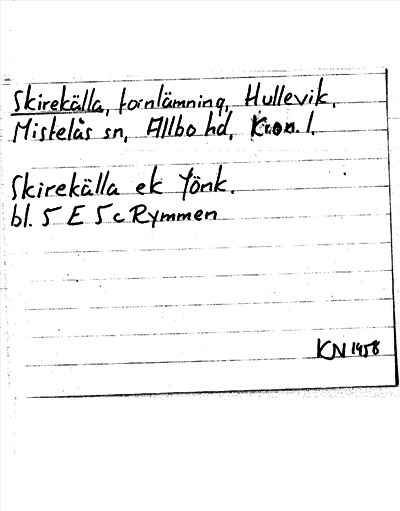 Skirekälla, fornlämning, Hullevik,
Mistelås sn, Allbo hd, Kron. l.
Skirekälla ek Jönk.
bl. 5 E 5 c Rymmen
KN 1958